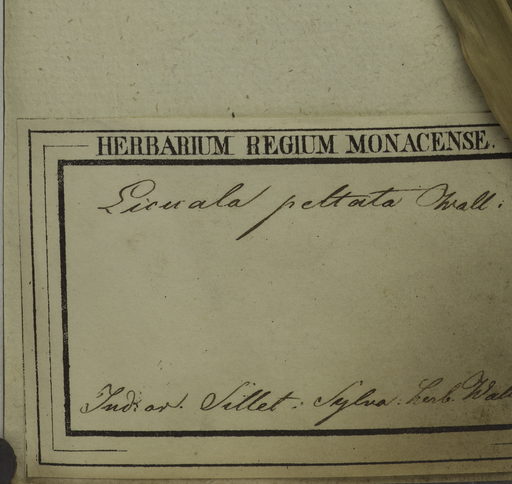 HERBARIUM REGIUM MONACENSE.
Licuala peltata Wall.
Ind. or. Sillet. Sylva. herb. Wall